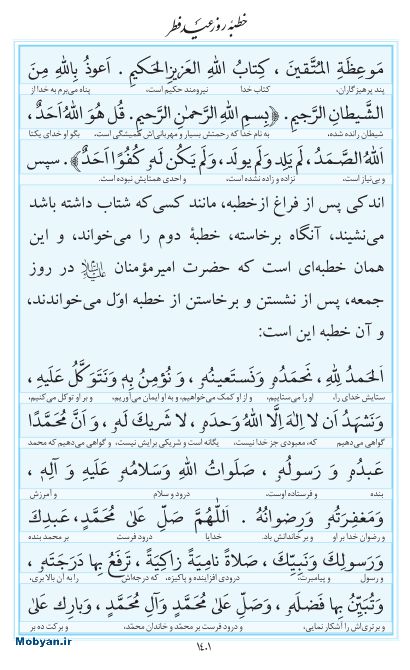 خطبهٔ روز عید فطر
مَوعِظَةِ المُتَّقینَ ، کِتابُ اللهِ العَزیزِ الحَکیمِ . اَعوذُ بِاللهِ مِنَ
پند پرهیزگاران، کتاب خدا نیرومند حکیم است، پناه می‌برم به خدا از
الشَّیطانِ الرَّجیمِ. ﴿بِسمِ اللهِ الرَّحمٰنِ الرَّحیمِ. قُل هُوَ اللهُ اَحَدٌ،
شیطان رانده شده، به نام خدا که رحمتش بسیار و مهربانی‌اش همیشگی است. بگو او خدای یکتا
اَللهُ الصَّمَدُ، لَم یَلِد وَلَم یولَد، وَلَم یَکُن لَهو کُفُوًا اَحَدٌ﴾. سپس
و بی‌نیاز است، نزاده و زاده نشده است، و احدی همتایش نبوده است.
اندکی پس از فراغ ازخطبه، مانند کسی‌که شتاب داشته باشد
می‌نشیند، آنگاه برخاسته، خطبهٔ دوم را می‌خواند، و این
همان خطبه‌ای است که حضرت امیرمؤمنان علیه‌السلام در روز
جمعه، پس از نشستن و برخاستن از خطبه اوّل می‌خواندند،
و آن خطبه این است:
اَلحَمدُ لِلّهِ، نَحمَدُهو وَنَستَعینُهو، وَ نُؤمِنُ بِهی وَنَتَوَکَّلُ عَلَیهِ،
ستایش خدای را، او را می‌ستاییم، و از او کمک می‌خواهیم، و به او ایمان می‌آوریم، و بر او توکل می‌کنیم،
وَنَشهَدُ اَن لا اِلٰهَ اِلَّا اللهُ وَحدَهو، لا شَریکَ لَهو، وَ اَنَّ مُحَمَّدًا
گواهی می‌دهیم که، معبودی جز خدا نیست، یگانه است و شریکی برایش نیست، و گواهی می‌دهیم که محمد
عَبدُهو وَ رَسولُهو، صَلَواتُ اللهِ وَسَلامُهو عَلَیهِ وَ آلِهی،
بنده و فرستاده اوست، درود و سلام و آمرزش
وَمَغفِرَتُهو وَرِضوانُهو. اَللّٰهُمَّ صَلِّ عَلیٰ مُحَمَّدٍ، عَبدِکَ
و رضوان خدا بر او و بر خاندانش باد. خدایا درود فرست بر محمد بنده
وَرَسولِکَ وَنَبِیِّکَ، صَلاةً نامِیَةً زاکِیَةً، تَرفَعُ بِها دَرَجَتَهو،
و رسول و پیامبرت؛ درودی افزاینده و پاکیزه، که درجه‌اش را به آن بالا بری،
وَتُبَیِّنُ بِها فَضلَهو، وَصَلِّ عَلیٰ مُحَمَّدٍ وَآلِ مُحَمَّدٍ، وَبارِک عَلیٰ
و برتری‌اش را آشکار نمایی، و درود فرست بر محمّد و خاندان محمّد، و برکت ده بر
Mobyan.ir
۱۴۰۱